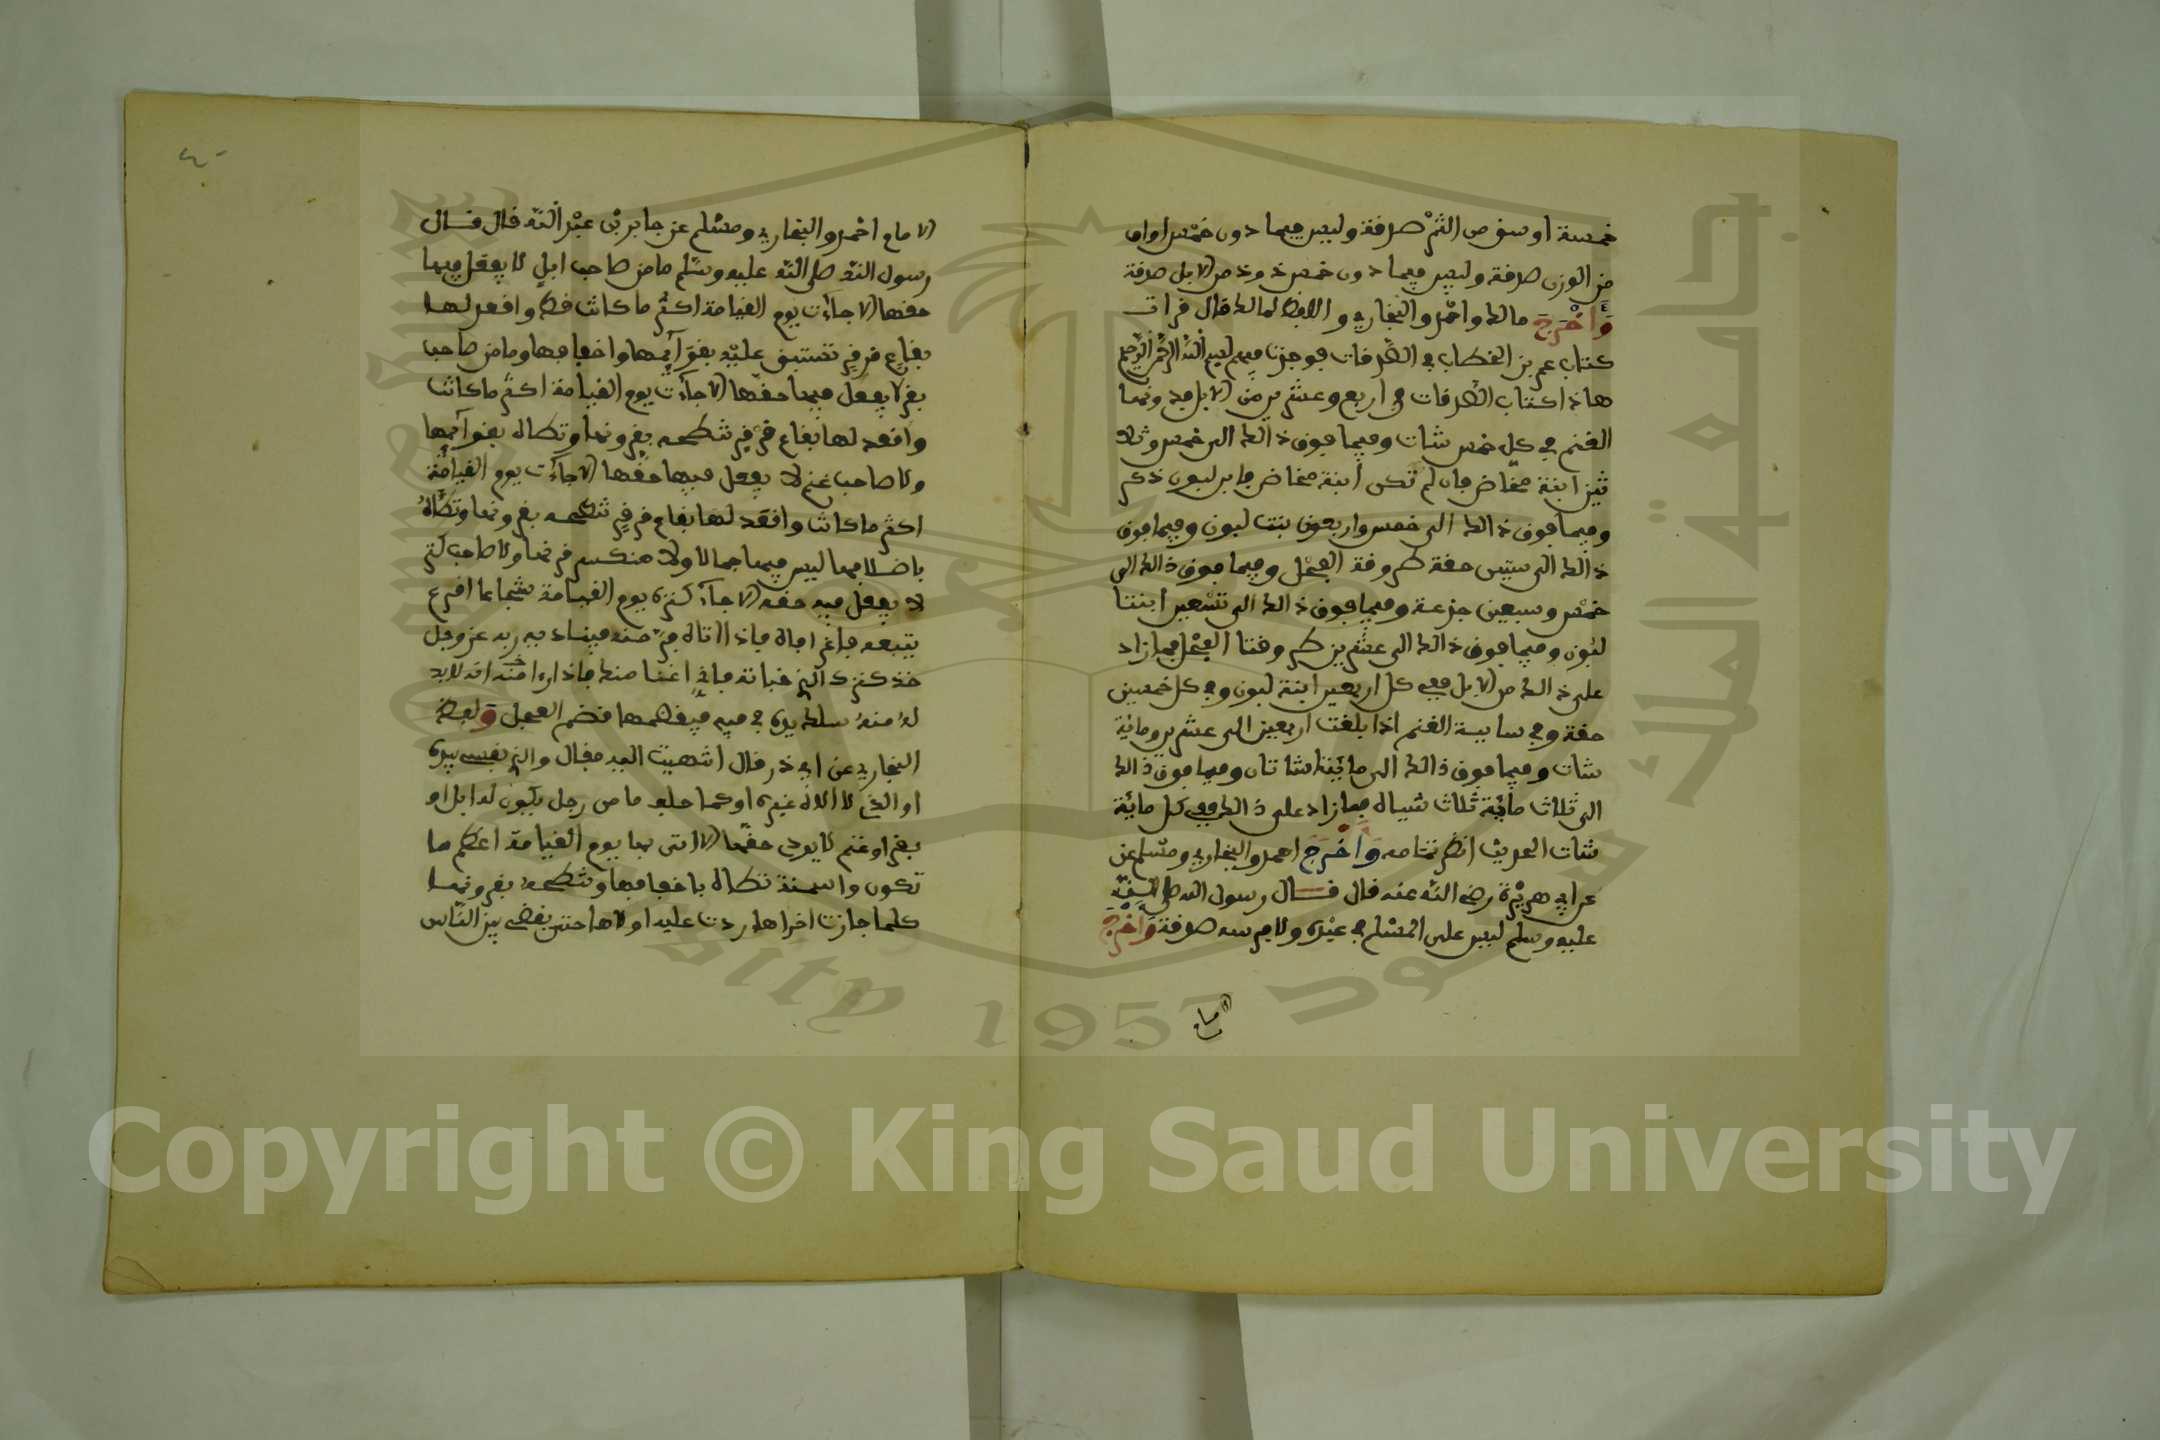 خمسة اوسق من الثمر صدقة وليس فيما دون خمس اواق
من الورق صدقة وليس فيما دون خمس ذود من الابل صدقة
وَأَخْرَجَ مالك واحمد والبخاري واللفظ لمالك قال قرات
كتاب عمر بن الخطاب في الصدقات فوجدت فيه بسم الله الرحمن الرحيم
هاذا كتاب الصدقات في اربع وعشرين من الابل فدونها
الغنم في كل خمس شات وفيما فوق ذالك الى خمس وثلا
ثين ابنة مخاض فان لم تكن ابنة مخاض فابن لبون ذكر
وفيما فوق ذالك الى خمس واربعون بنت لبون وفيما فوق
ذالك الى ستين حقة طروقة الفحل وفيما فوق ذالك الى
خمس وسبعين جزعة وفيما فوق ذالك الى تسعين ابنتا
لبون وفيما فوق ذالك الى عشرين طروقتا الفحل فما زاد
على ذالك من الابل ففي كل اربعين ابنة لبون وفي كل خمسين
حقة وفي سايمة الغنم اذا بلغت اربعين الى عشرين ومائة
شات وفيما فوق ذالك الى مائتين شاتان وفيما فوق ذالك
الى ثلاث مائة ثلاث شياه فما زاد على ذالك ففي كل مائة
شات الحديث انظر تمامه وَأَخْرَجَ احمد والبخاري ومسلم عن
عن ابي هريرة رضي الله عنه قال قال رسول الله صلى الله
عليه وسلم ليس على المسلم في عبده ولا فرسه صدقة وَأَخْرَجَ
الامام
الامام احمد والبخاري ومسلم عن جابر بن عبد الله قال قال
رسول الله صلى الله عليه وسلم ما من صاحب ابل لا يفعل فيها
حقها الا جاءت يوم القيامة اكثر ما كانت قط واقعد لها
بقاع قرقر تستن عليه بقوائمها واخفافها وما من صاحب
بقر لا يفعل فيها حقها الا جاءت يوم القيامة اكثر ما كانت
واقعد لها بقاع قرقر تنطحه بقرونها وتطاه بقوائمها
ولا صاحب غنم لا يفعل فيها حقها الا جاءت يوم القيامة
اكثر ما كانت واقعد لها بقاع قرقر تنطحه بقرونها وتطاه
باضلافها ليس فيها جما ولا منكسر قرنها ولا صاحب كنز
لا يفعل فيه حقه الا جاء كنزه يوم القيامة شجاعا اقرع
يتبعه فاغرا فاه فاذا اتاه فر منه فيناديه ربه عز وجل
خذ كنزك الذي خباته فاني اغنا منك فاذا راى انه لابد
له منه سلك يده في فيه فيقضمها قضم الفحل وَلفظ
البخاري عن ابي ذر قال انتهيت اليه فقال والذي نفسي بيده
او الذي لا الاه غيره او كما حلف ما من رجل يكون له ابل او
بقر او غنم لا يودي حقها الا اتى بها يوم القيامة اعظم ما
تكون واسمنه تطاه باخفافها وتنطحه بقرونها
كلما جازت اخراها ردت عليه اولاها حتى يقضى بين الناس
Copyright © King Saud University